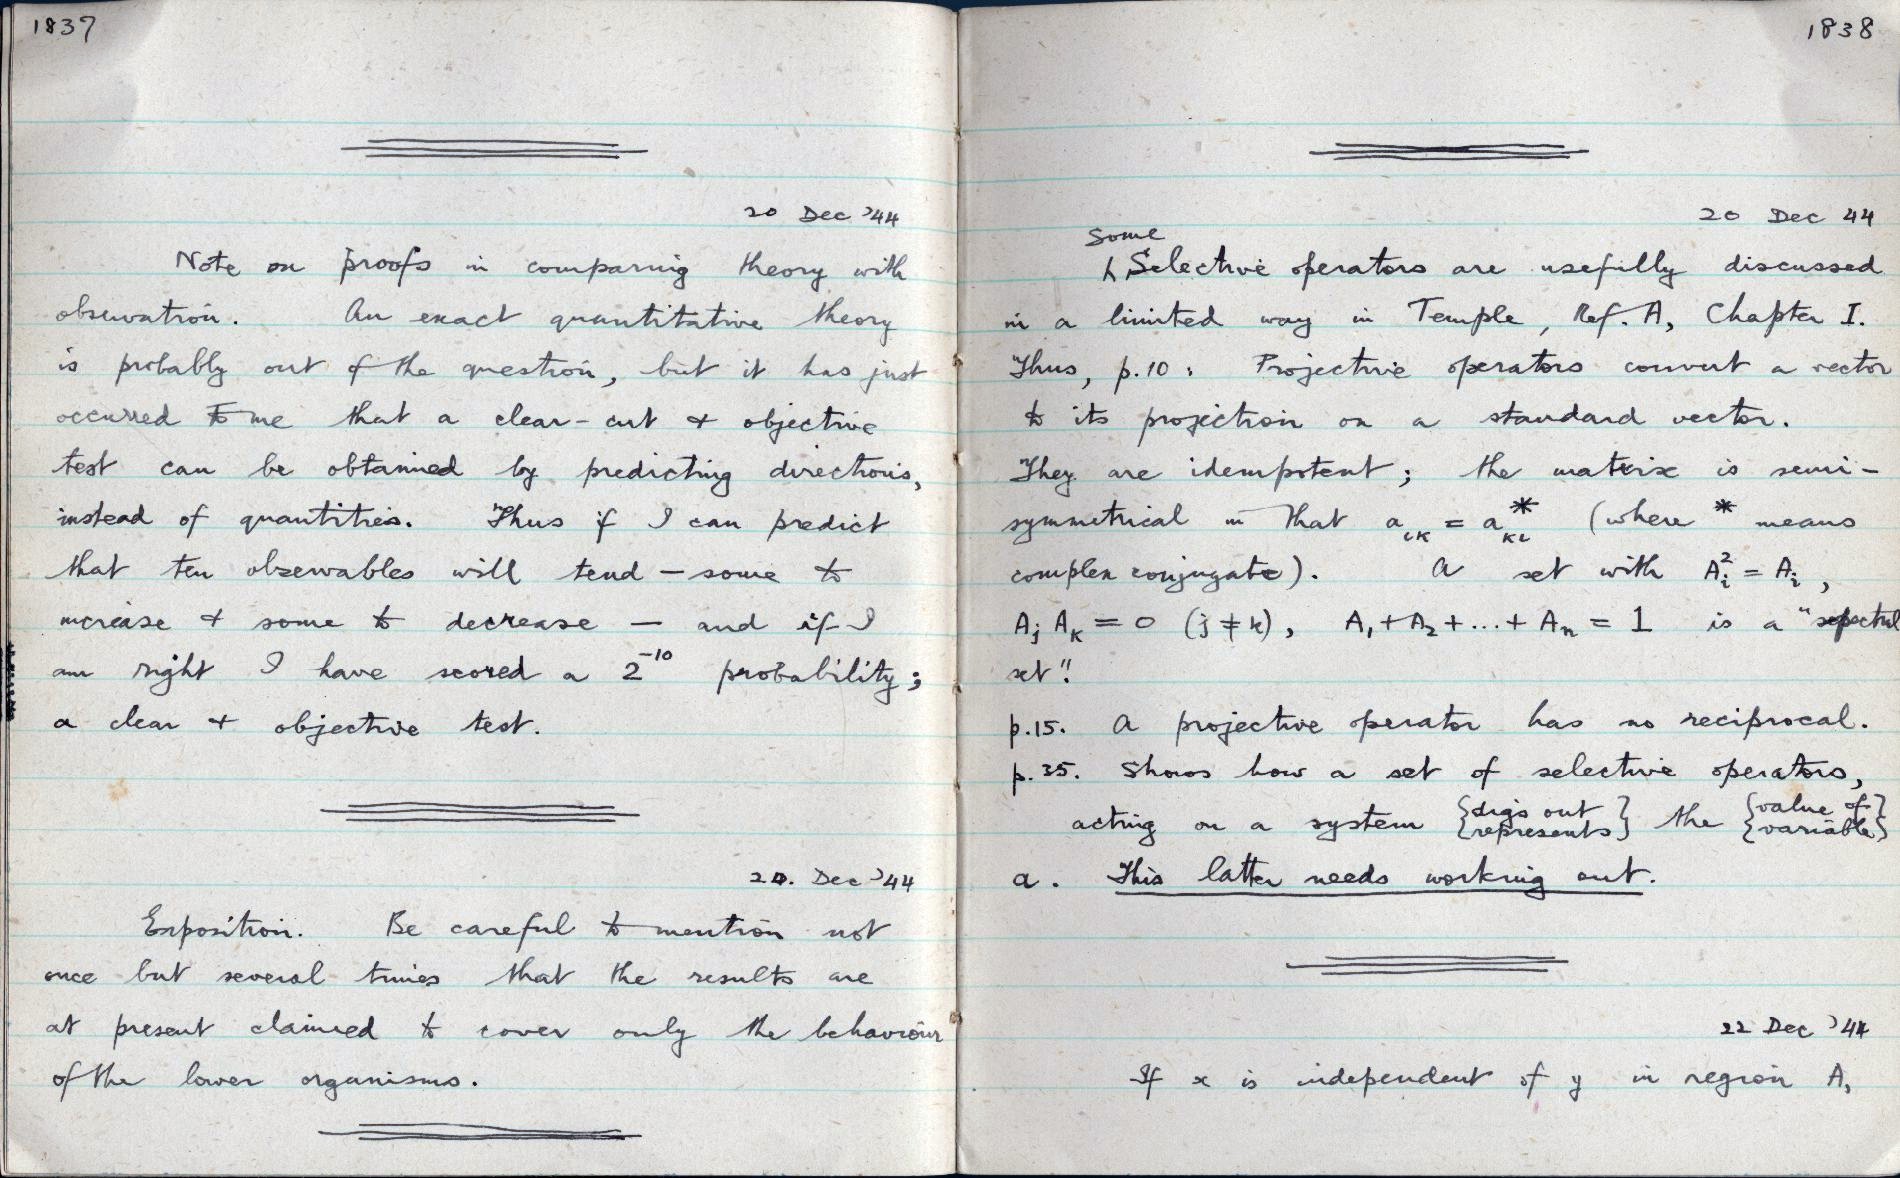 1837
20 Dec '44
Note on proofs in comparing theory with
observation. An exact quantitative theory
is probably out of the question, but it has just
occurred to me that a clear-cut & objective
test can be obtained by predicting directions,
instead of quantities. Thus if I can predict
that ten observables will tend — some to
increase & some to decrease — and if I
am right I have scored a 2⁻¹⁰ probability;
a clear & objective test.
20. Dec '44
Exposition. Be careful to mention not
once but several times that the results are
at present claimed to cover only the behaviour
of the lower organisms.
1838
20 Dec 44
Some
Selective operators are usefully discussed
in a limited way in Temple, Ref. A, Chapter I.
Thus, p.10: Projective operators convert a vector
to its projection on a standard vector.
They are idempotent; the matrix is semi-
symmetrical in that a_ik = a*_ki (where * means
complex conjugate). A set with A_i² = A_i,
A_j A_k = 0 (j ≠ k), A₁ + A₂ + ... + A_n = 1 is a "spectral
set".
p.15. A projective operator has no reciprocal.
p.35. Shows how a set of selective operators,
acting on a system {digs out / represents} the {value of / variable}
a. This latter needs working out.
22 Dec '44
If x is independent of y in region A,